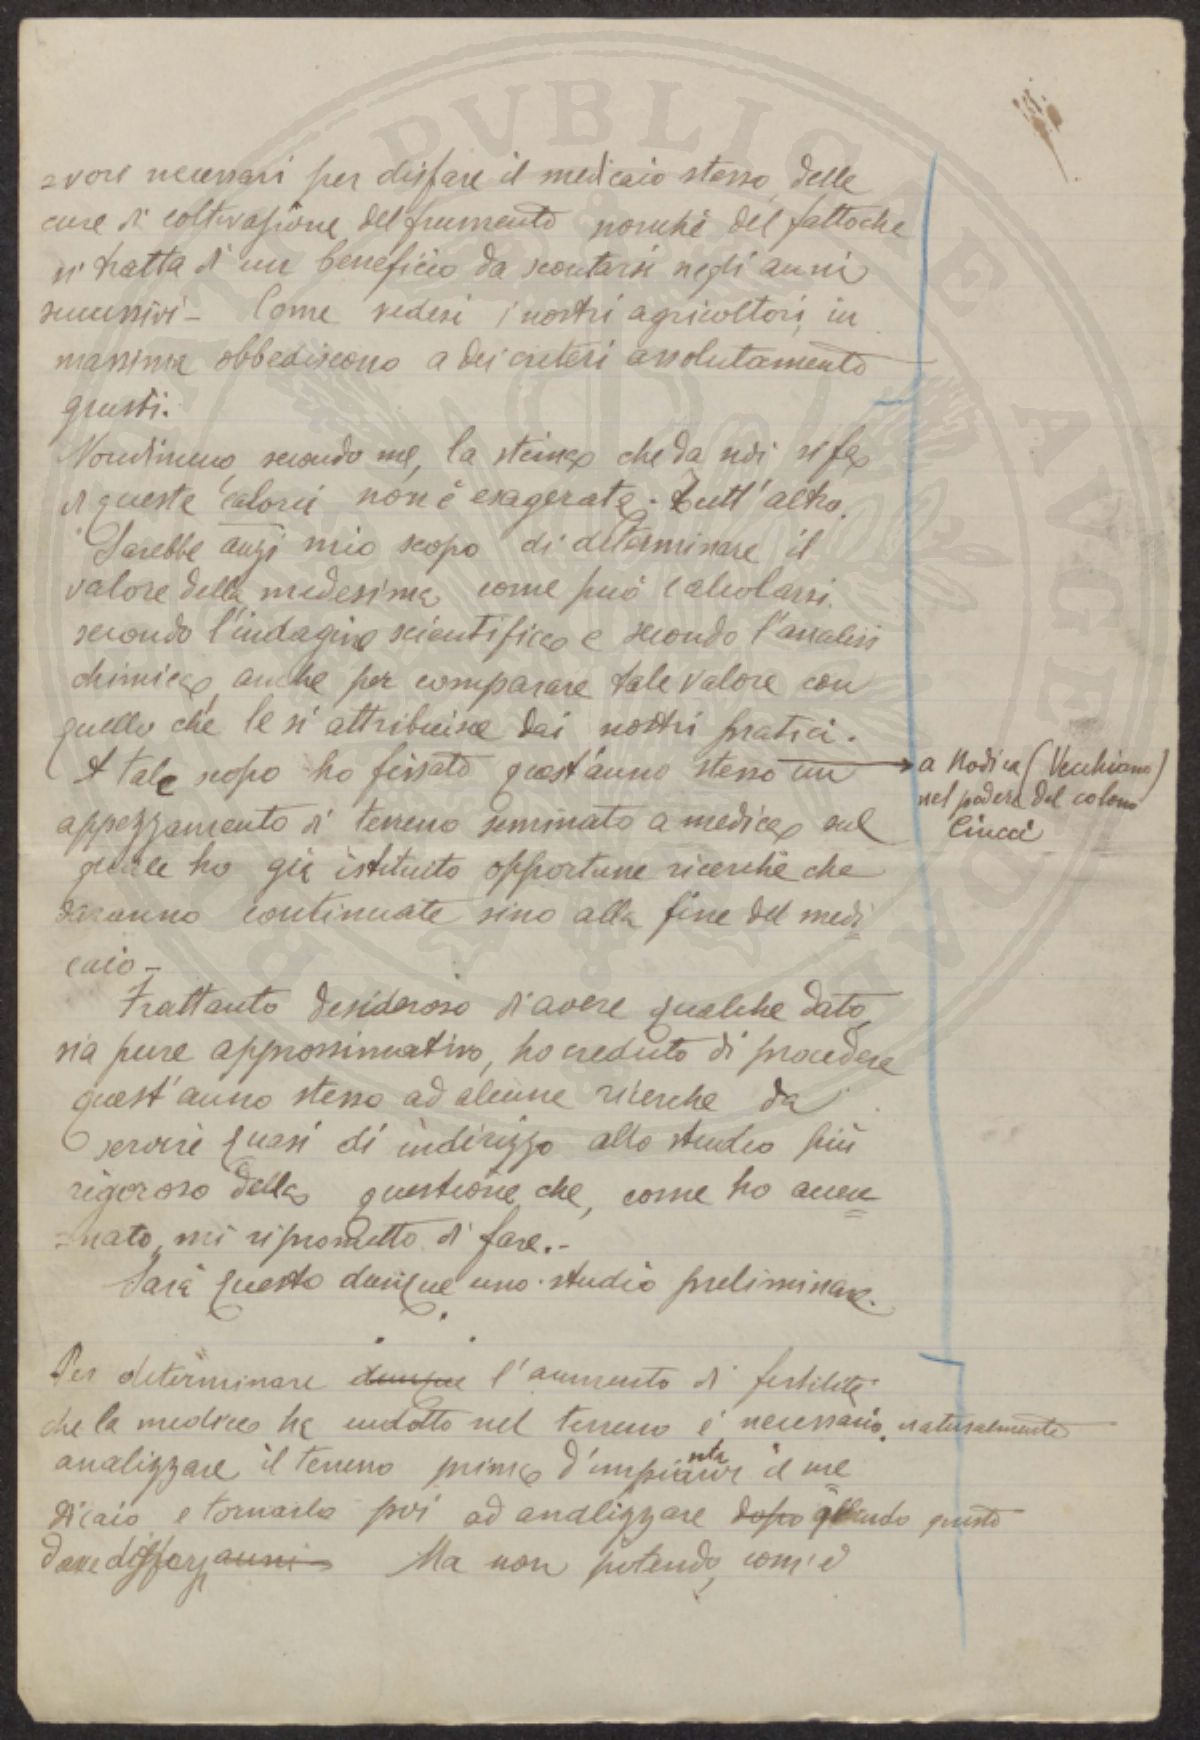 =vori necessari per disfare il medicaio stesso, delle
cure di coltivazione del frumento nonchè del fatto che
si tratta di un beneficio da scontarsi negli anni
successivi - Come vedesi i nostri agricoltori, in
massima obbediscono a dei criteri assolutamente
giusti.
Nondimeno, secondo me, la stima che da noi si fa
di queste calorie non è esagerata. Tutt'altro.
Sarebbe anzi mio scopo di determinare il
valore della medesima come può calcolarsi
secondo l'indagine scientifica e secondo l'analisi
chimica, anche per comparare tale valore con
quello che le si attribuisce dai nostri pratici.
A tale scopo ho fissato quest'anno stesso un
a Nodica (Vecchiano)
nel podere del colono
Ciucci
appezzamento di terreno seminato a medica sul
quale ho già istituito opportune ricerche che
saranno continuate sino alla fine del medi
caio -
Frattanto desideroso di avere qualche dato,
sia pure approssimativo, ho creduto di procedere
quest'anno stesso ad alcune ricerche da
servire quasi di indirizzo allo studio più
rigoroso della questione che, come ho accen
=nato, mi riprometto di fare. -
Sarà questo dunque uno studio preliminare.
Per determinare dunque l'aumento di fertilità
che la medica ha indotto nel terreno è necessario, naturalmente
analizzare il terreno prima d'impiantar il me
dicaio e tornarlo poi ad analizzare dopo quando questo
deve disfarsi anni Ma non potendo, com'è